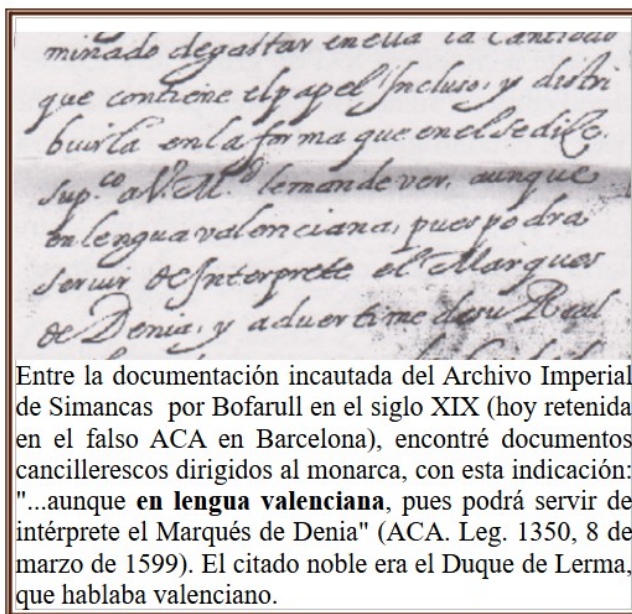 minado de gastar en ella la Cantidad
que contiene el papel Incluso, y distri
buirla en la forma que en el se dice.
sup.co a V. M.d le mande ver, aunque
en lengua valenciana, pues podra
seruir de Interprete el Marques
de Denia, y aduertirme de su Real
Entre la documentación incautada del Archivo Imperial
de Simancas por Bofarull en el siglo XIX (hoy retenida
en el falso ACA en Barcelona), encontré documentos
cancillerescos dirigidos al monarca, con esta indicación:
"...aunque en lengua valenciana, pues podrá servir de
intérprete el Marqués de Denia" (ACA. Leg. 1350, 8 de
marzo de 1599). El citado noble era el Duque de Lerma,
que hablaba valenciano.